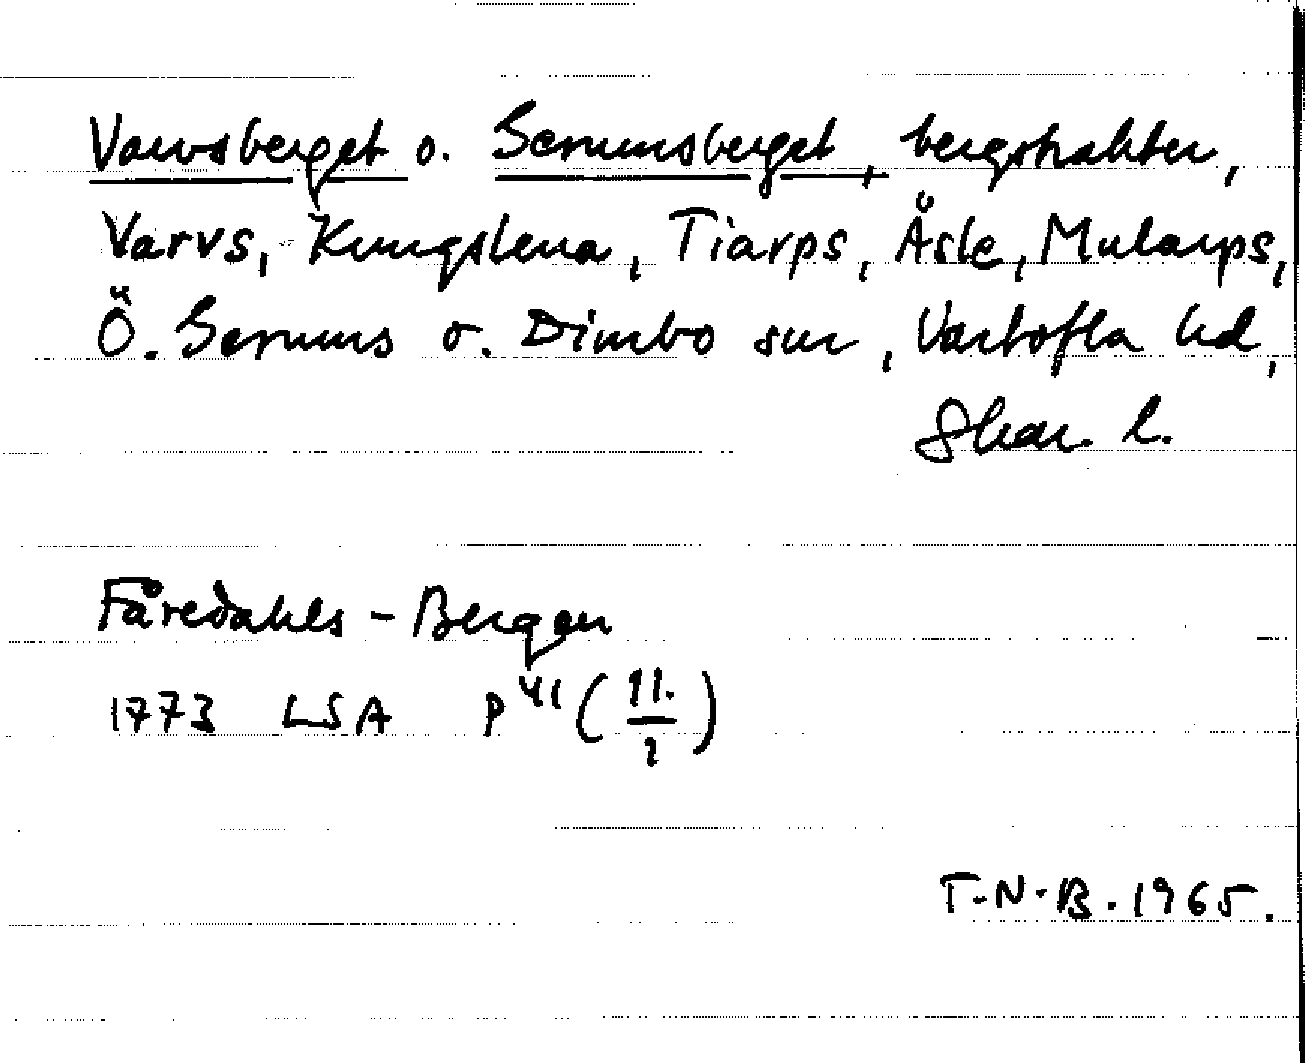 Varvsberget o. Gerumsberget, bergstrakter,
Varvs, Kungslena, Tiarps, Åsle, Mularps,
Ö. Gerums o. Dimbo snr, Vartofta hd,
Skar. l.
Fåredahls-Bergen
1773 LSA P 41 (11./2)
T-N-B. 1965.